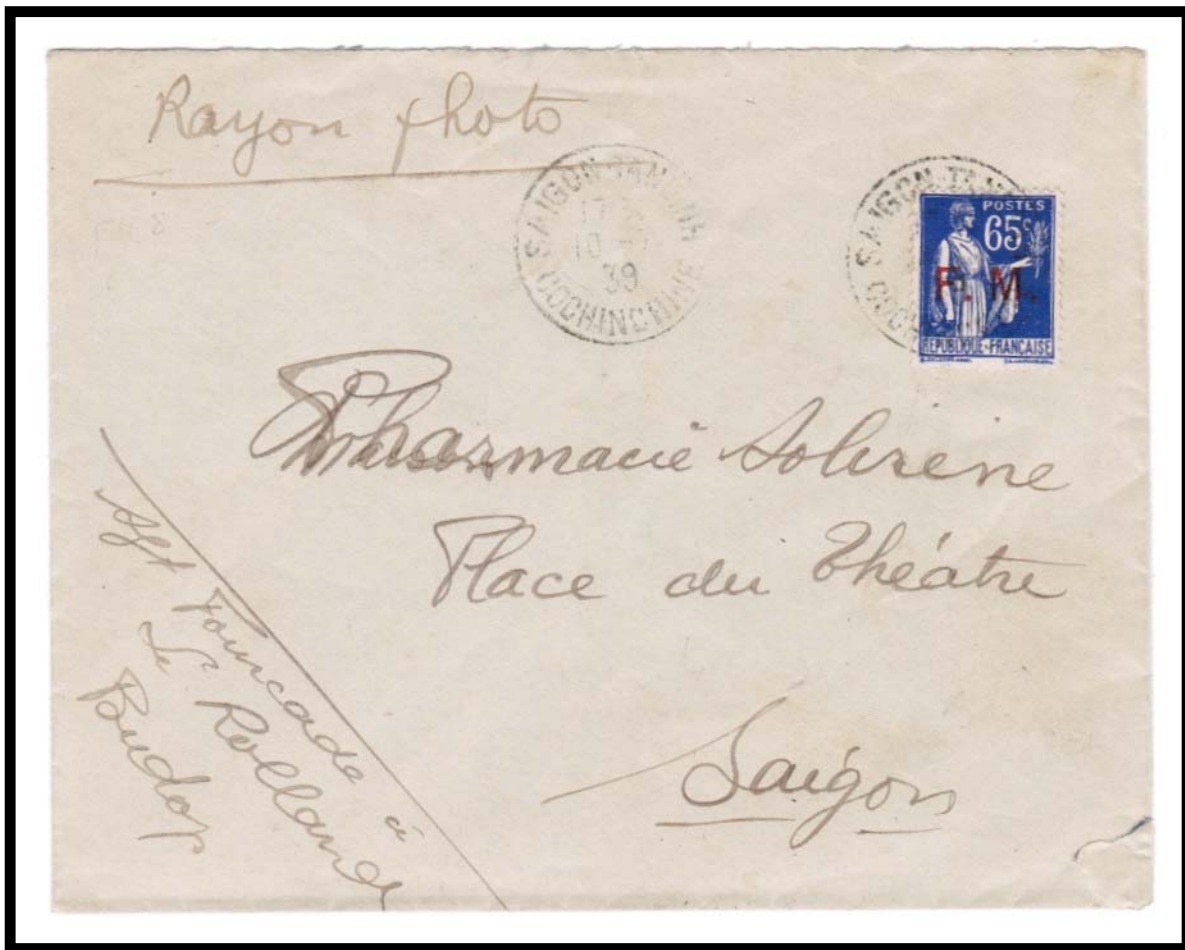 Rayon photo
SAIGON-TANDINH
17
10
39
COCHINCHINE
SAIGON-TAN
COCH
POSTES
65c
F. M.
REPUBLIQUE-FRANCAISE
Pharmacie Solirène
Place du Théâtre
Saigon
Sgt Fourcade à
Le Rolland
Budop